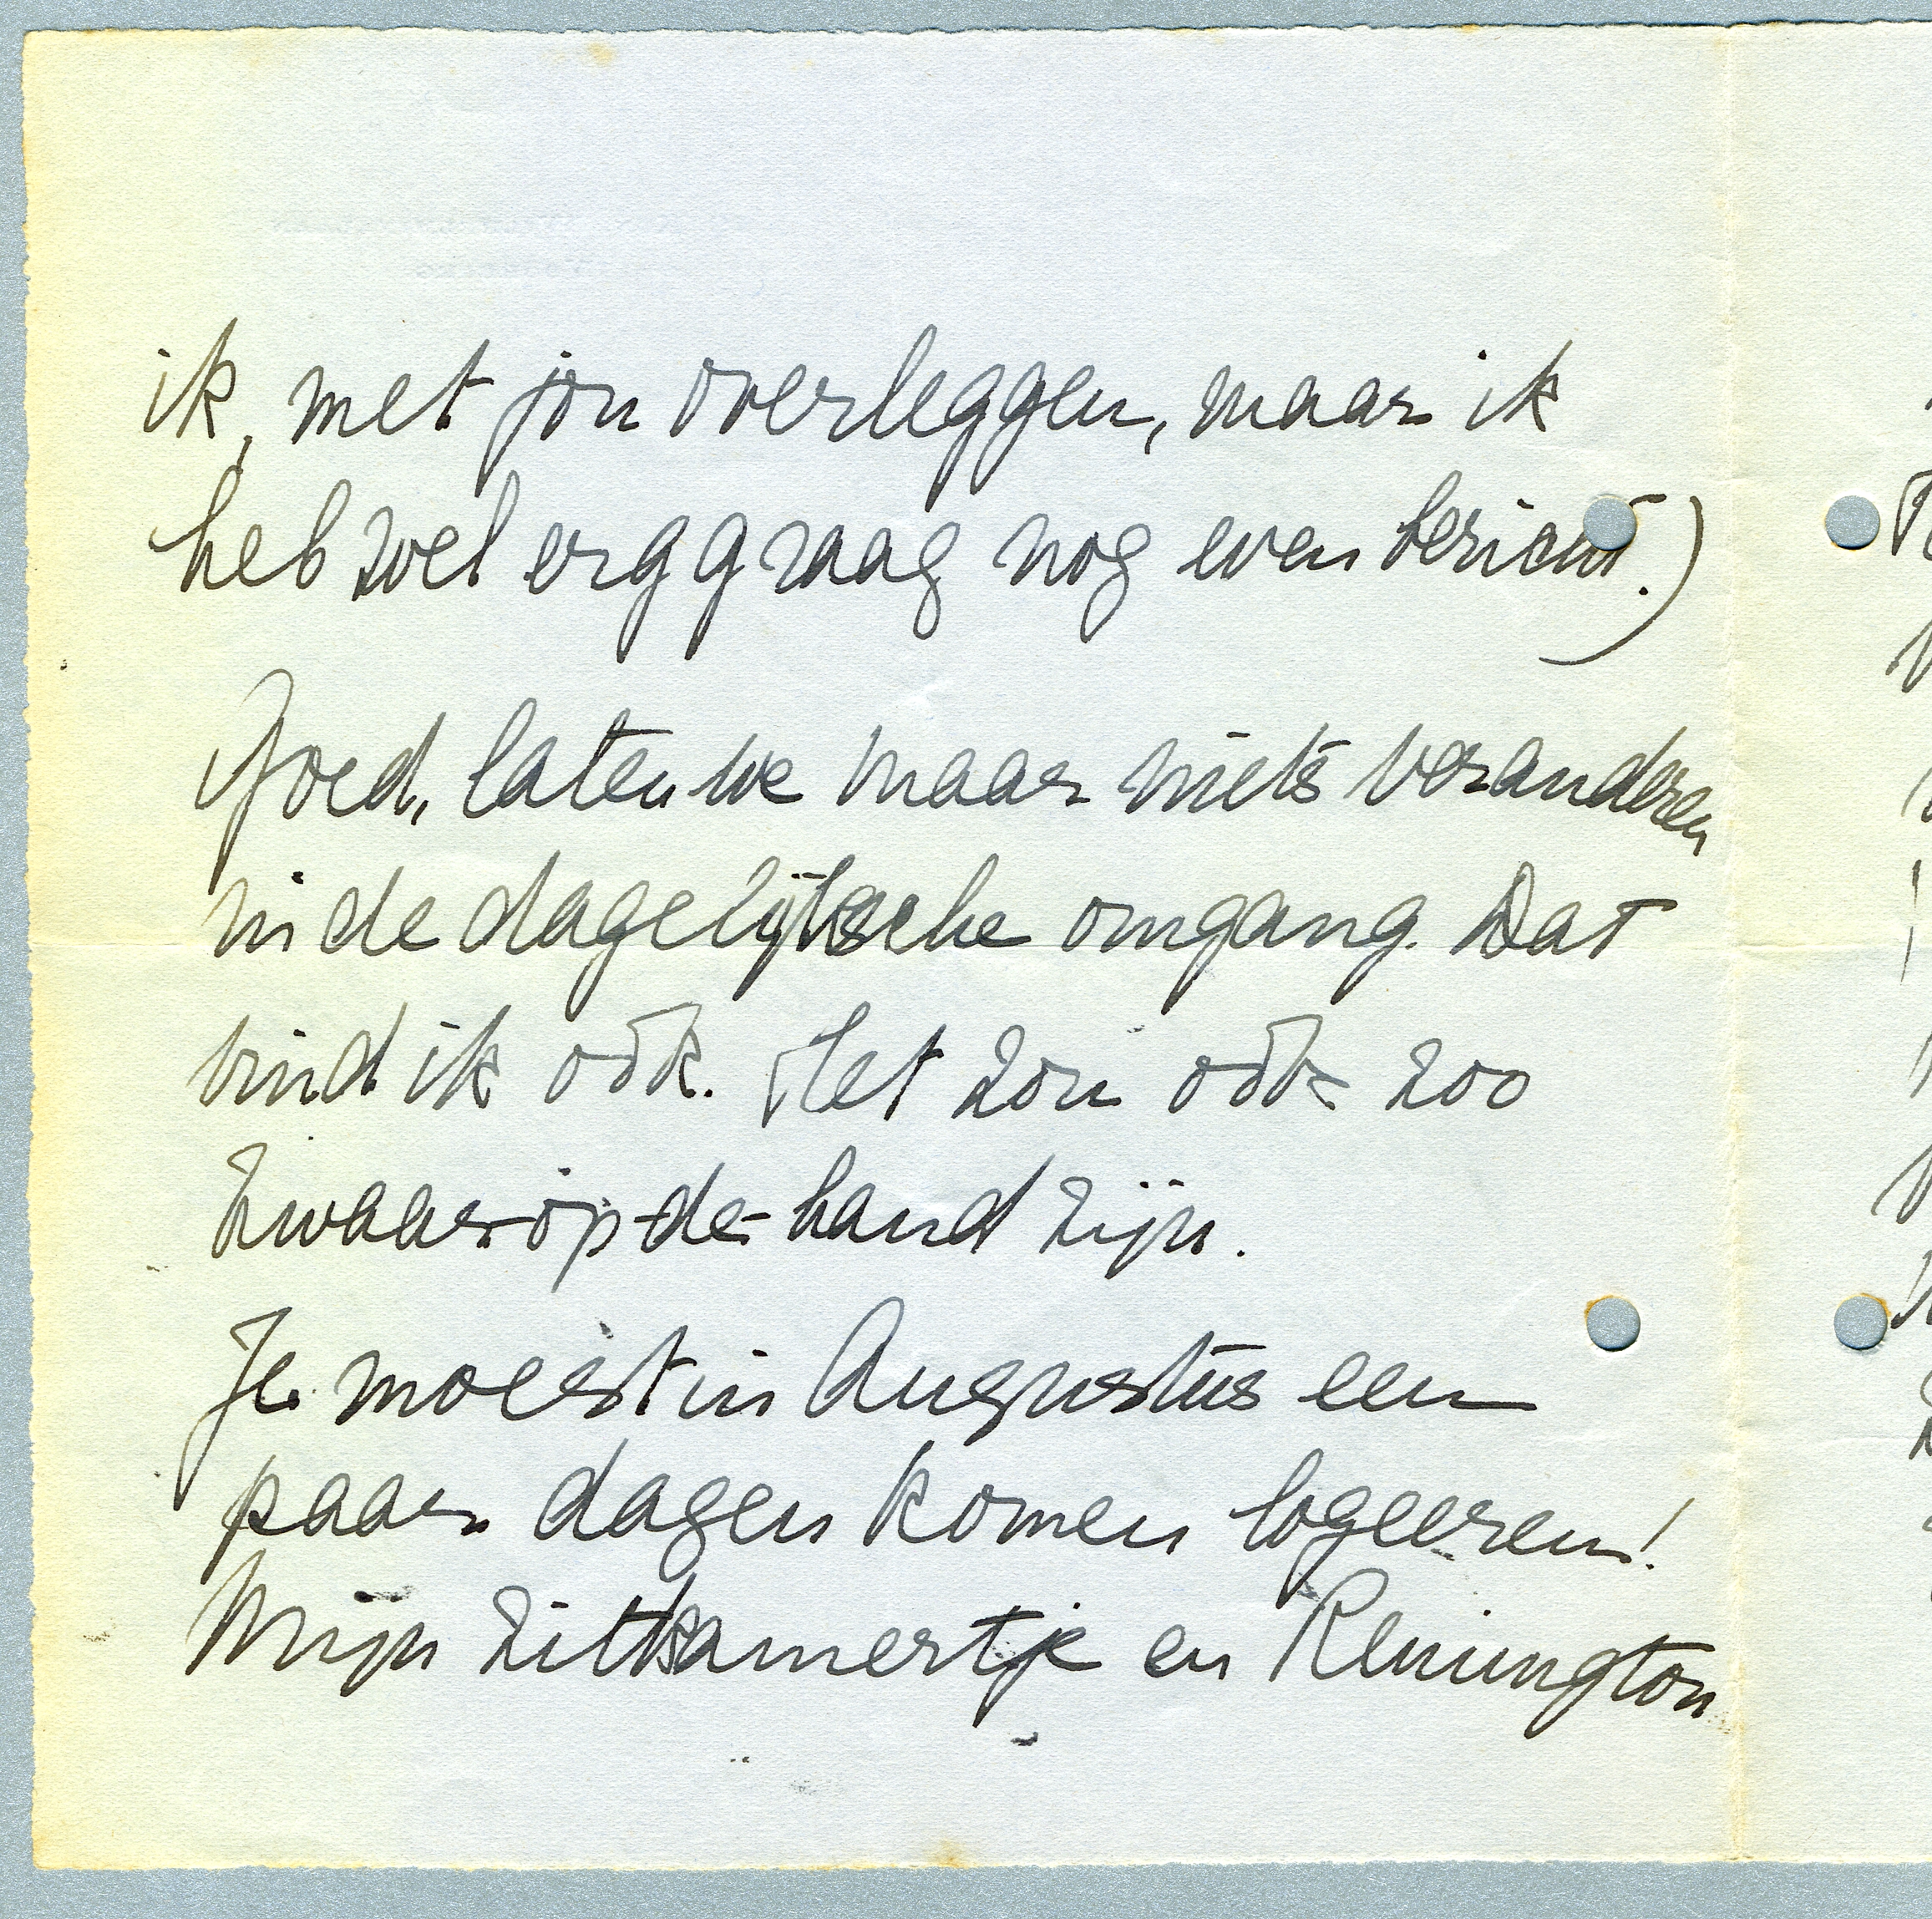 ik, met jou overleggen, maar ik
heb wel erg graag nog even bericht.)
Goed, laten we maar niets veranderen
in de dagelijksche omgang. Dat
vind ik oók. Het zou oók zoo
zwaar-op-de-hand zijn.
Je moest in Augustus een
paar dagen komen logeeren!
Mijn zitkamertje en Remington